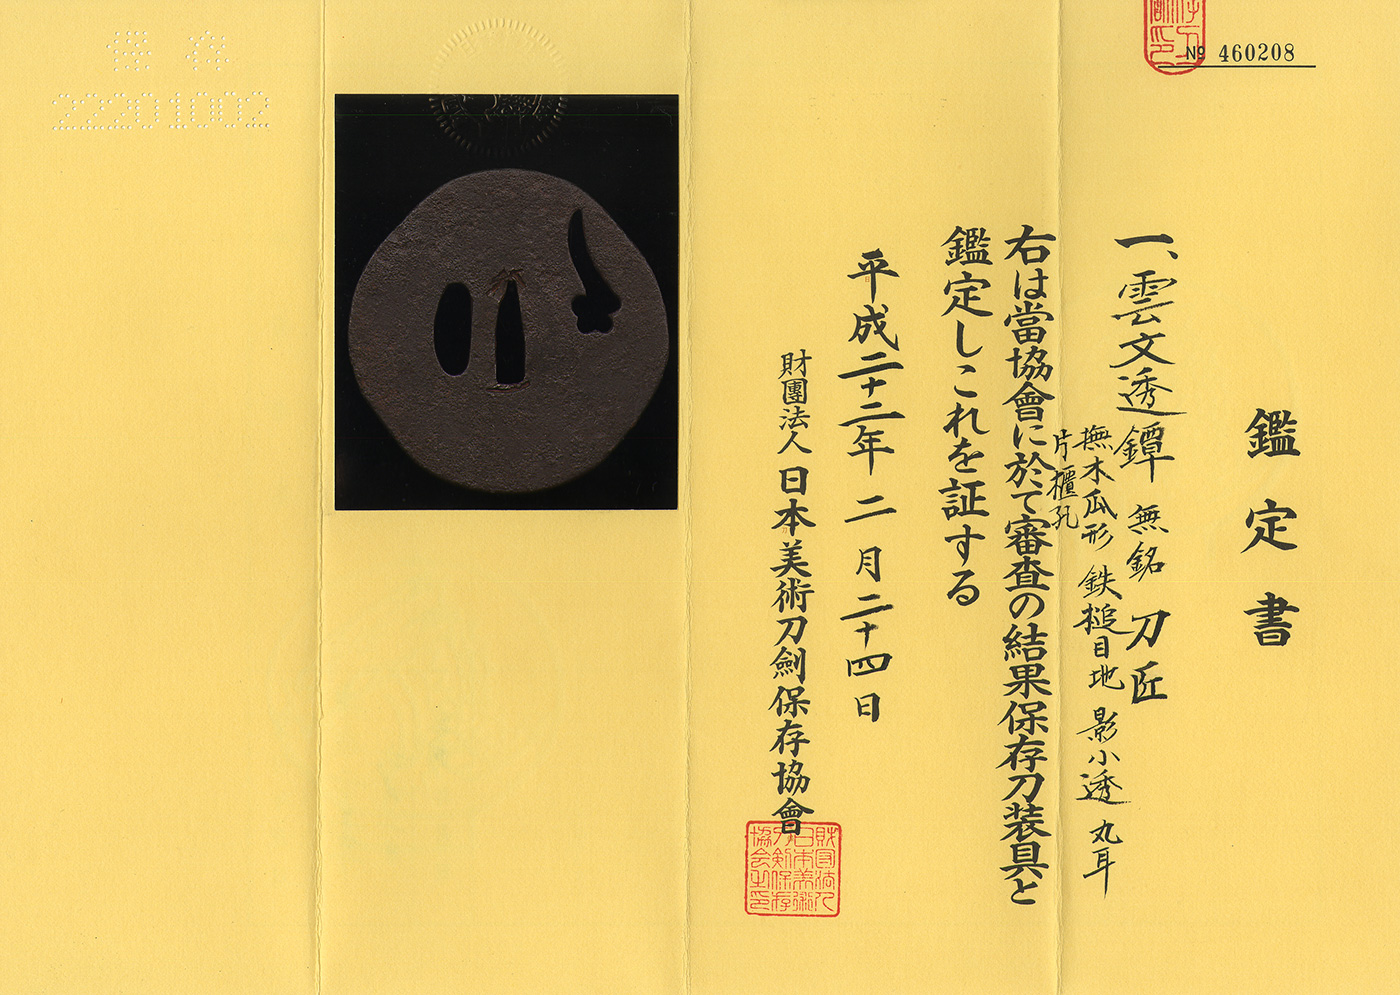 № 460208
鑑定書
一、雲文透鐔 無銘 刀匠
撫木瓜形 鉄槌目地 影小透 丸耳
片櫃孔
右は當協會に於て審査の結果保存刀装具と
鑑定しこれを証する
平成二十二年 二月二十四日
財團法人日本美術刀劍保存協會
財団法人日本美術刀剣保存協会之印
保存
22201002